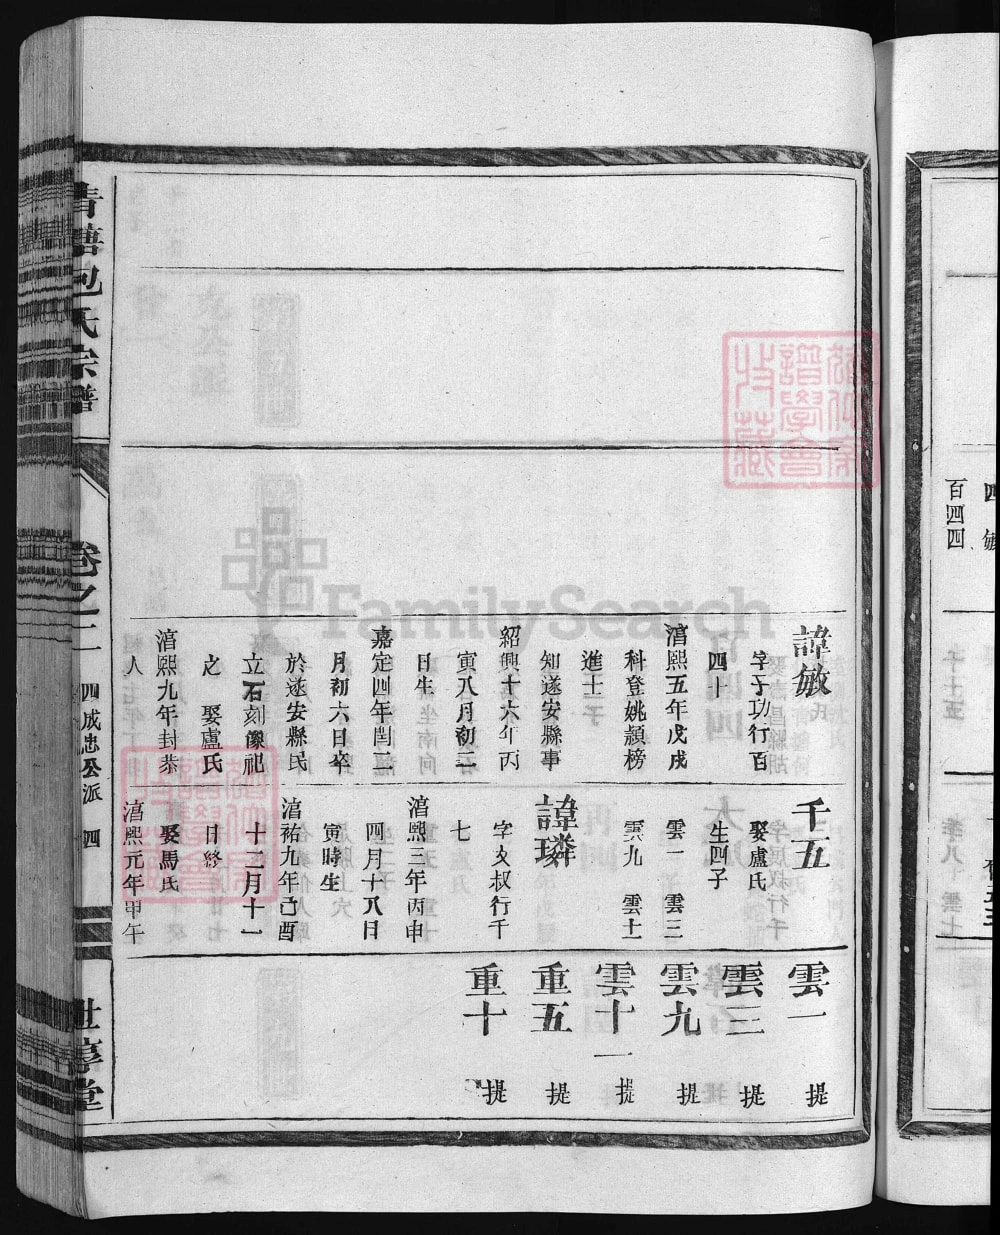 諱敏
字子功行百
四十
淳熙五年戊戌
科登姚頴榜
進士
知遂安縣事
紹興十六年丙
寅八月初三
日生
嘉定四年閏二
月初六日卒
於遂安縣民
立石刻像祀
之 娶盧氏
淳熙九年封恭
人
千五
娶盧氏
生四子
雲一 雲三
雲九 雲十一
諱璘
字文叔行千
七
淳熙三年丙申
四月十八日
寅時生
淳祐九年己酉
十二月十一
日終
娶馬氏
淳熙元年甲午
雲一 提
雲三 提
雲九 提
雲十一 提
重五 提
重十 提
青塘包氏宗譜
卷之二
四成忠公派 四
世享堂
百四四
FamilySearch